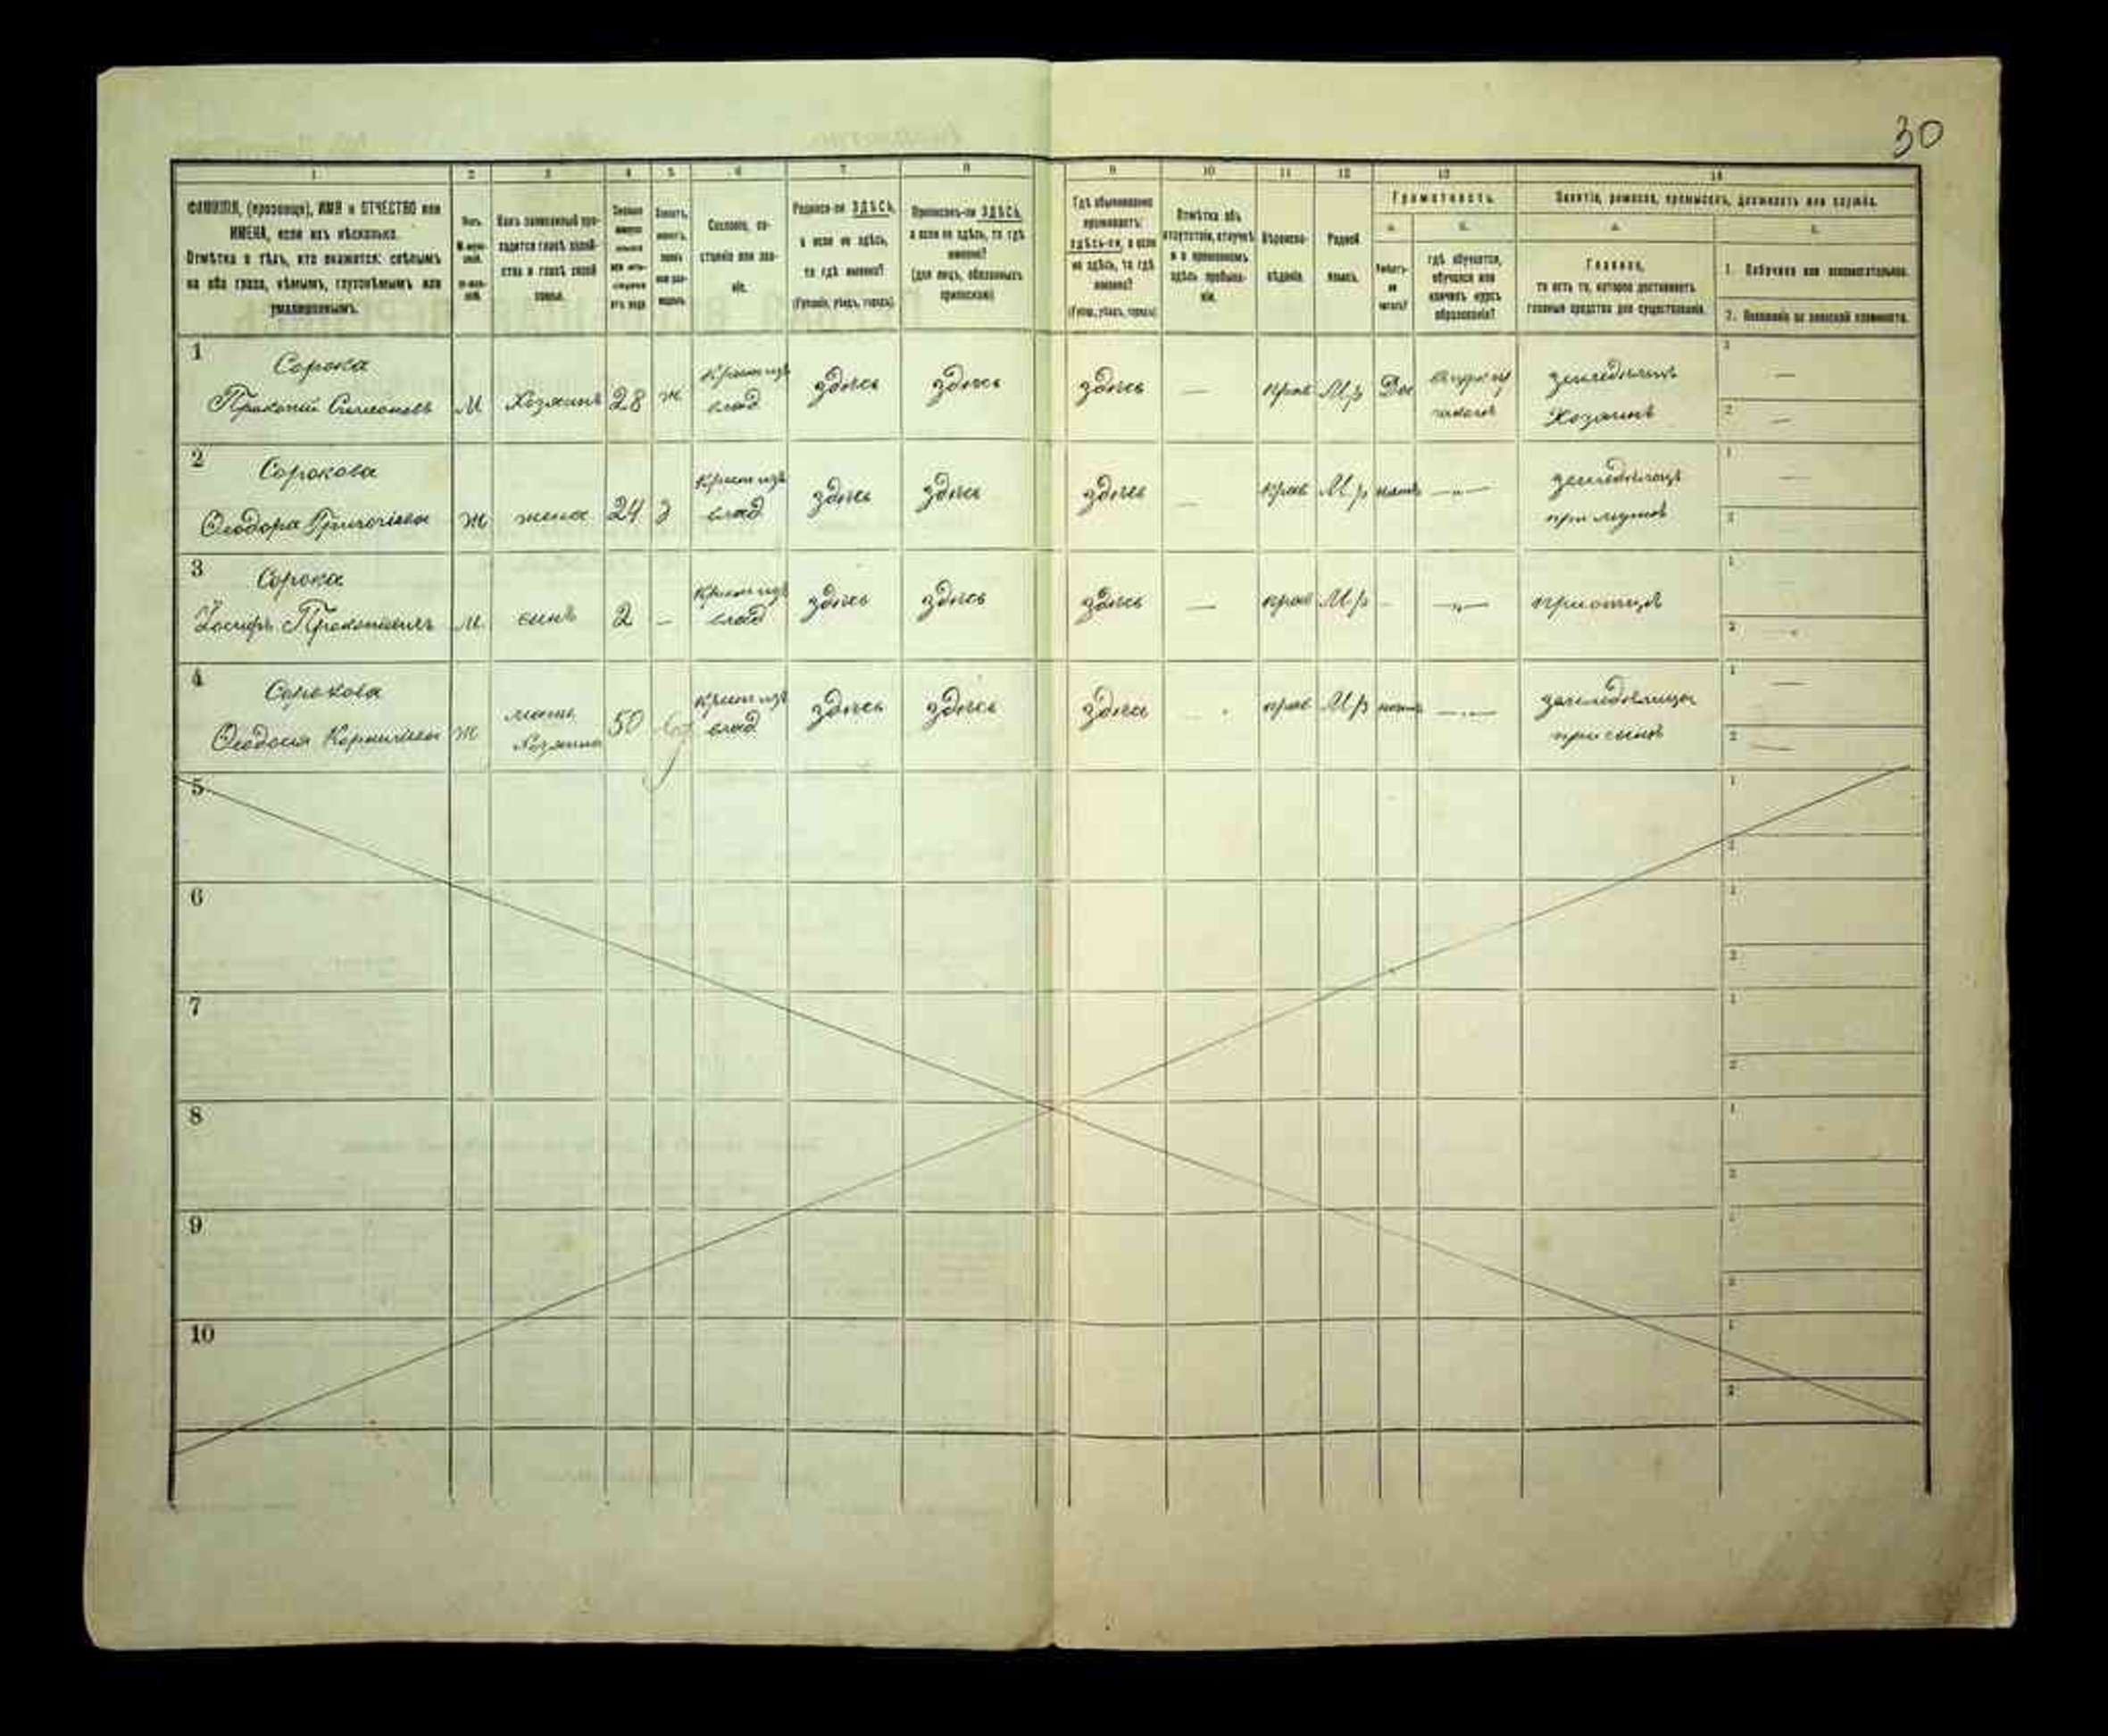 30
1 2 3 4 5 6 7 8 9 10 11 12 13 14
ФАМИЛІЯ, (прозвище), ИМЯ и ОТЧЕСТВО или
ИМЕНА, если ихъ нѣсколько.
Отмѣтка о тѣхъ, кто окажется: слѣпымъ
на оба глаза, нѣмымъ, глухонѣмымъ или
умалишеннымъ.
Полъ.
Какъ записанный при-
ходится главѣ хозяй-
ства и главѣ своей
семьи.
Сословіе, со-
стояніе или зва-
ніе.
Родился-ли ЗДѢСЬ,
а если не здѣсь,
то гдѣ именно?
(Губернія, уѣздъ, городъ)
Приписанъ-ли ЗДѢСЬ,
а если не здѣсь, то гдѣ
именно?
(для лицъ, обязанныхъ
припискою)
Гдѣ обыкновенно
проживаетъ:
здѣсь-ли, а если
не здѣсь, то гдѣ
именно?
(Губер., уѣздъ, городъ)
Отмѣтка объ
отсутствіи, отлучкѣ
и о временномъ
здѣсь пребыва-
ніи.
Вѣроиспо-
вѣданіе.
Родной
языкъ.
Грамотность.
а. б.
Умѣетъ-
ли
читать?
гдѣ обучается,
обучался или
кончилъ курсъ
образованія?
Занятіе, ремесло, промыселъ, должность или служба.
а. б.
Главное,
то есть то, которое доставляетъ
главныя средства для существованія.
1. Побочное или вспомогательное.
2. Положеніе по воинской повинности.
1 Сорока
Прокопій Симеоновъ М Хозяинъ 28 ж Крест изъ влад здѣсь здѣсь здѣсь — прав М.р Да земледѣлецъ Хозяинъ 1 — 2 —
2 Сорокова
Ѳеодора Григоріева Ж жена 24 з Крест изъ влад здѣсь здѣсь здѣсь — прав М.р нѣтъ —"— при мужѣ 1 — 2
3 Сорока
Іосифъ Прокопіевичъ М сынъ 2 — Крест изъ влад здѣсь здѣсь здѣсь — прав М.р - —"— при отцѣ 1 2
4 Сорокова
Ѳеодосія Корниліева Ж мать Хозяина 50 Крест изъ влад здѣсь здѣсь здѣсь — прав М.р нѣтъ —"— при сынѣ 1 — 2 —
5 1 2
6 1 2
7 1 2
8 1 2
9 1 2
10 1 2